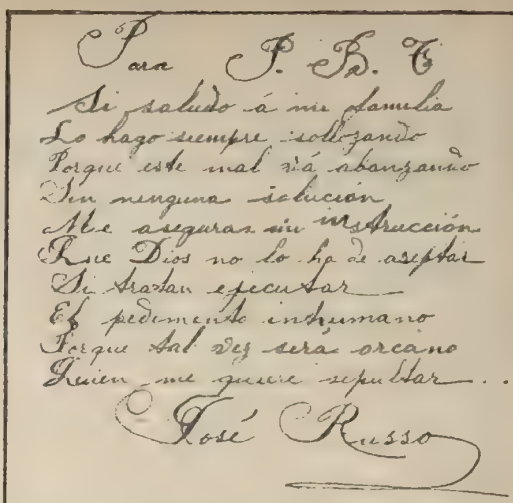 Para P. B. T
Si saludo á mi familia
Lo hago siempre sollozando
Porque este mal vá abanzando
Sin nenguna solución
Me aseguran mi instrucción
Que Dios no lo ha de aseptar
Si tratan ejecutar
El pedimento inhumano
Porque tal vez será orcano
Quien me quiere sepultar...
José Russo